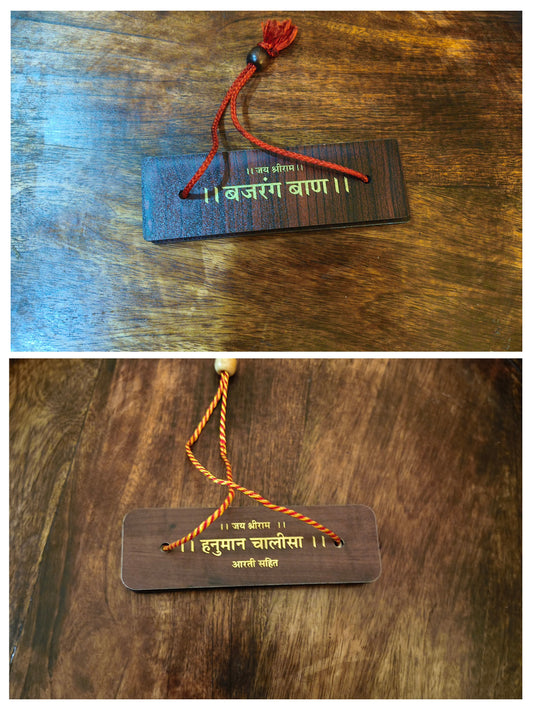 ।। जय श्रीराम ।।
।। बजरंग बाण ।।
।। जय श्रीराम ।।
।। हनुमान चालीसा ।।
आरती सहित